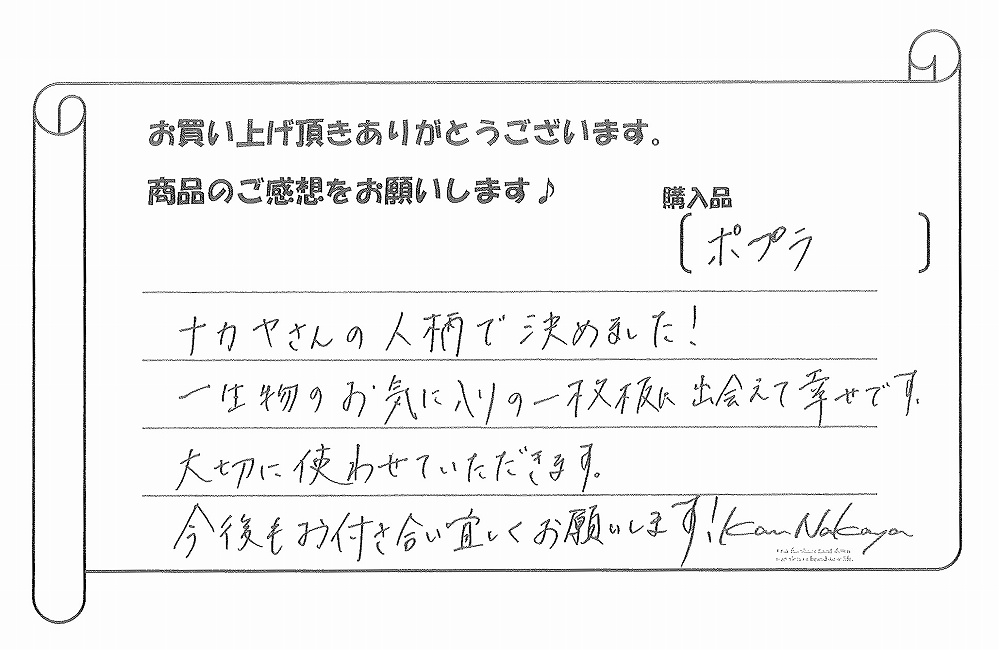 お買い上げ頂きありがとうございます。
商品のご感想をお願いします♪
購入品
〔 ポプラ 〕
ナカヤさんの人柄で決めました!
一生物のお気に入りの一枚板に出会えて幸せです。
大切に使わせていただきます。
今後もお付き合い宜しくお願いします!
Kan Nakaya